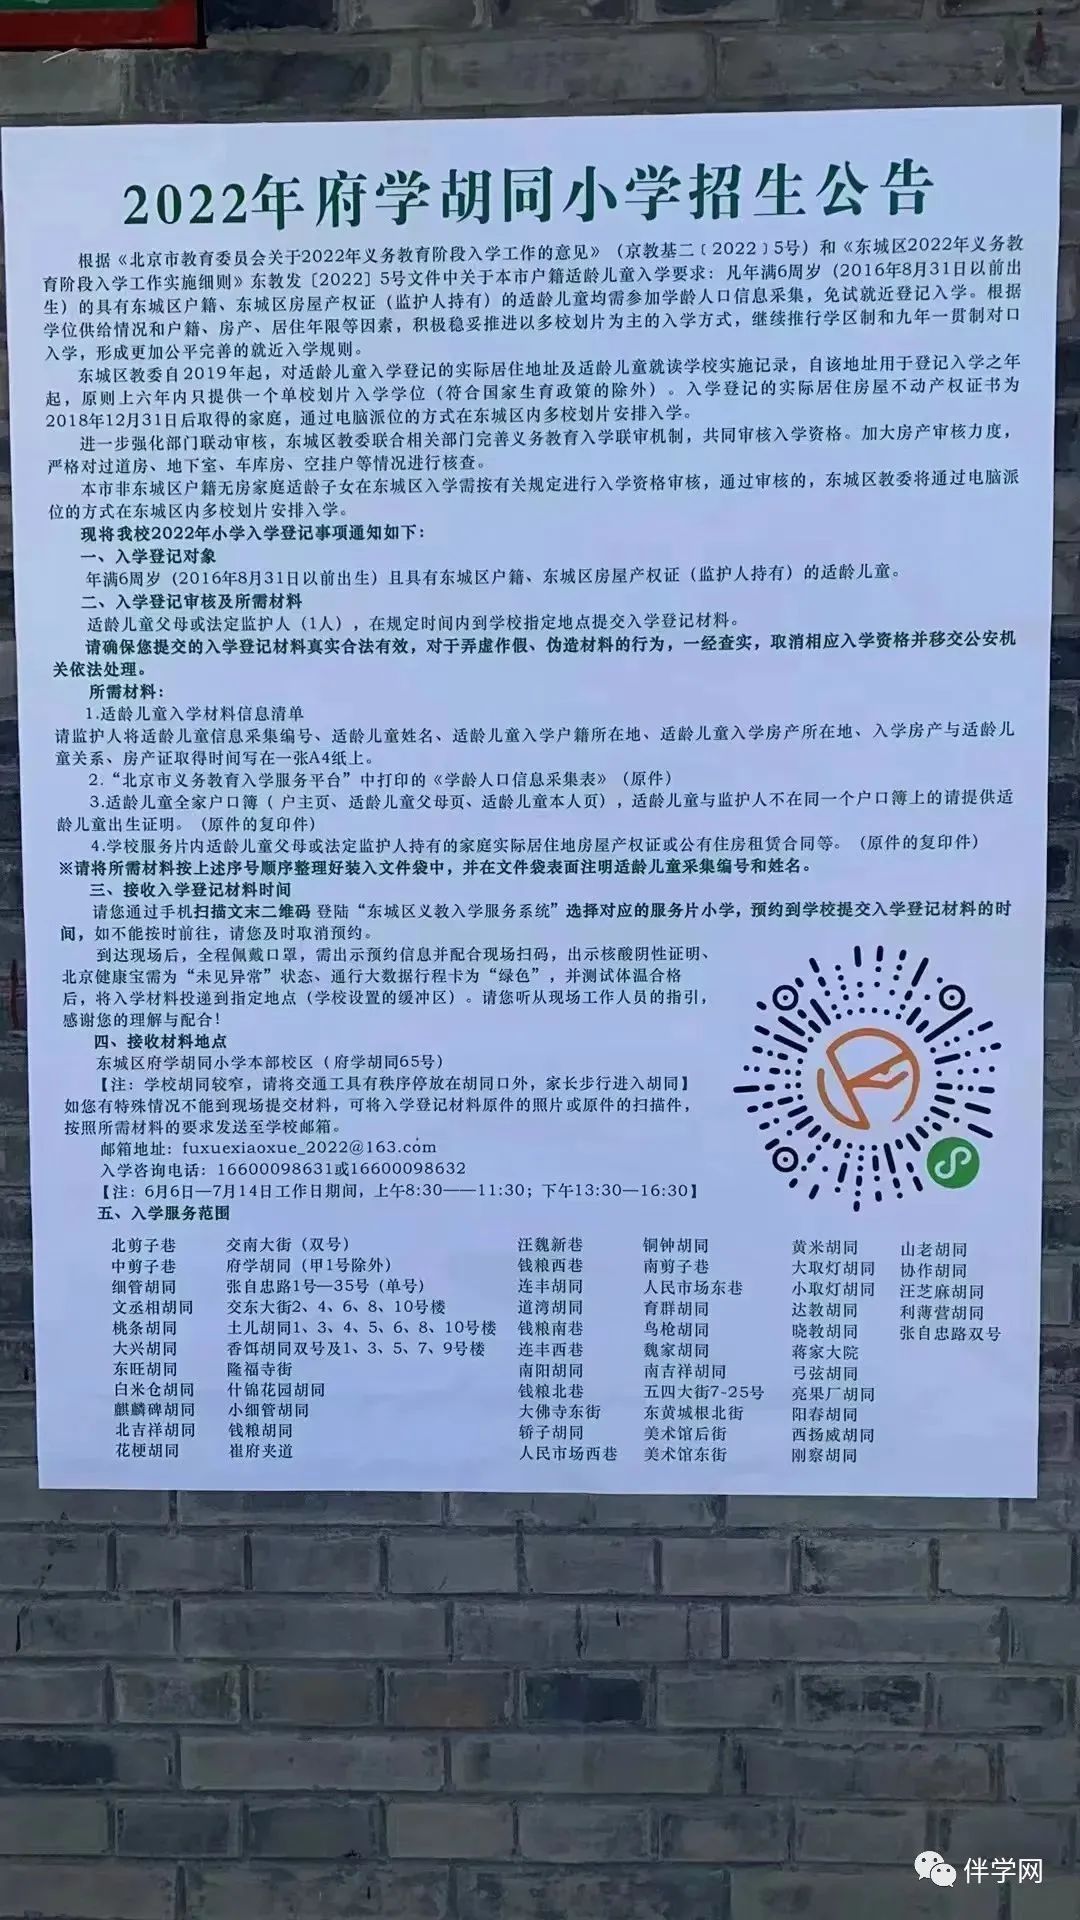 2022年府学胡同小学招生公告
根据《北京市教育委员会关于2022年义务教育阶段入学工作的意见》（京教基二〔2022〕5号）和《东城区2022年义务教
育阶段入学工作实施细则》东教发〔2022〕5号文件中关于本市户籍适龄儿童入学要求：凡年满6周岁（2016年8月31日以前出
生）的具有东城区户籍、东城区房屋产权证（监护人持有）的适龄儿童均需参加学龄人口信息采集，免试就近登记入学。根据
学位供给情况和户籍、房产、居住年限等因素，积极稳妥推进以多校划片为主的入学方式，继续推行学区制和九年一贯制对口
入学，形成更加公平完善的就近入学规则。
东城区教委自2019年起，对适龄儿童入学登记的实际居住地址及适龄儿童就读学校实施记录，自该地址用于登记入学之年
起，原则上六年内只提供一个单校划片入学学位（符合国家生育政策的除外）。入学登记的实际居住房屋不动产权证书为
2018年12月31日后取得的家庭，通过电脑派位的方式在东城区内多校划片安排入学。
进一步强化部门联动审核，东城区教委联合相关部门完善义务教育入学联审机制，共同审核入学资格。加大房产审核力度，
严格对过道房、地下室、车库房、空挂户等情况进行核查。
本市非东城区户籍无房家庭适龄子女在东城区入学需按有关规定进行入学资格审核，通过审核的，东城区教委将通过电脑派
位的方式在东城区内多校划片安排入学。
现将我校2022年小学入学登记事项通知如下：
一、入学登记对象
年满6周岁（2016年8月31日以前出生）且具有东城区户籍、东城区房屋产权证（监护人持有）的适龄儿童。
二、入学登记审核及所需材料
适龄儿童父母或法定监护人（1人），在规定时间内到学校指定地点提交入学登记材料。
请确保您提交的入学登记材料真实合法有效，对于弄虚作假、伪造材料的行为，一经查实，取消相应入学资格并移交公安机
关依法处理。
所需材料：
1.适龄儿童入学材料信息清单
请监护人将适龄儿童信息采集编号、适龄儿童姓名、适龄儿童入学户籍所在地、适龄儿童入学房产所在地、入学房产与适龄儿
童关系、房产证取得时间写在一张A4纸上。
2.“北京市义务教育入学服务平台”中打印的《学龄人口信息采集表》（原件）
3.适龄儿童全家户口簿（户主页、适龄儿童父母页、适龄儿童本人页），适龄儿童与监护人不在同一个户口簿上的请提供适
龄儿童出生证明。（原件的复印件）
4.学校服务片内适龄儿童父母或法定监护人持有的家庭实际居住地房屋产权证或公有住房租赁合同等。（原件的复印件）
※请将所需材料按上述序号顺序整理好装入文件袋中，并在文件袋表面注明适龄儿童采集编号和姓名。
三、接收入学登记材料时间
请您通过手机扫描文末二维码 登陆“东城区义教入学服务系统”选择对应的服务片小学，预约到学校提交入学登记材料的时
间，如不能按时前往，请您及时取消预约。
到达现场后，全程佩戴口罩，需出示预约信息并配合现场扫码，出示核酸阴性证明、
北京健康宝需为“未见异常”状态、通行大数据行程卡为“绿色”，并测试体温合格
后，将入学材料投递到指定地点（学校设置的缓冲区）。请您听从现场工作人员的指引，
感谢您的理解与配合！
四、接收材料地点
东城区府学胡同小学本部校区（府学胡同65号）
【注：学校胡同较窄，请将交通工具有秩序停放在胡同口外，家长步行进入胡同】
如您有特殊情况不能到现场提交材料，可将入学登记材料原件的照片或原件的扫描件，
按照所需材料的要求发送至学校邮箱。
邮箱地址：fuxuexiaoxue_2022@163.com
入学咨询电话：16600098631或16600098632
【注：6月6日—7月14日工作日期间，上午8:30——11:30；下午13:30—16:30】
五、入学服务范围
北剪子巷 交南大街（双号） 汪魏新巷 铜钟胡同 黄米胡同 山老胡同
中剪子巷 府学胡同（甲1号除外） 钱粮西巷 南剪子巷 大取灯胡同 协作胡同
细管胡同 张自忠路1号—35号（单号） 连丰胡同 人民市场东巷 小取灯胡同 汪芝麻胡同
文丞相胡同 交东大街2、4、6、8、10号楼 道湾胡同 育群胡同 达教胡同 利薄营胡同
桃条胡同 土儿胡同1、3、4、5、6、8、10号楼 钱粮南巷 鸟枪胡同 晓教胡同 张自忠路双号
大兴胡同 香饵胡同双号及1、3、5、7、9号楼 连丰西巷 魏家胡同 蒋家大院
东旺胡同 隆福寺街 南阳胡同 南吉祥胡同 弓弦胡同
白米仓胡同 什锦花园胡同 钱粮北巷 五四大街7-25号 亮果厂胡同
麒麟碑胡同 小细管胡同 大佛寺东街 东黄城根北街 阳春胡同
北吉祥胡同 钱粮胡同 轿子胡同 美术馆后街 西扬威胡同
花梗胡同 崔府夹道 人民市场西巷 美术馆东街 刚察胡同
伴学网